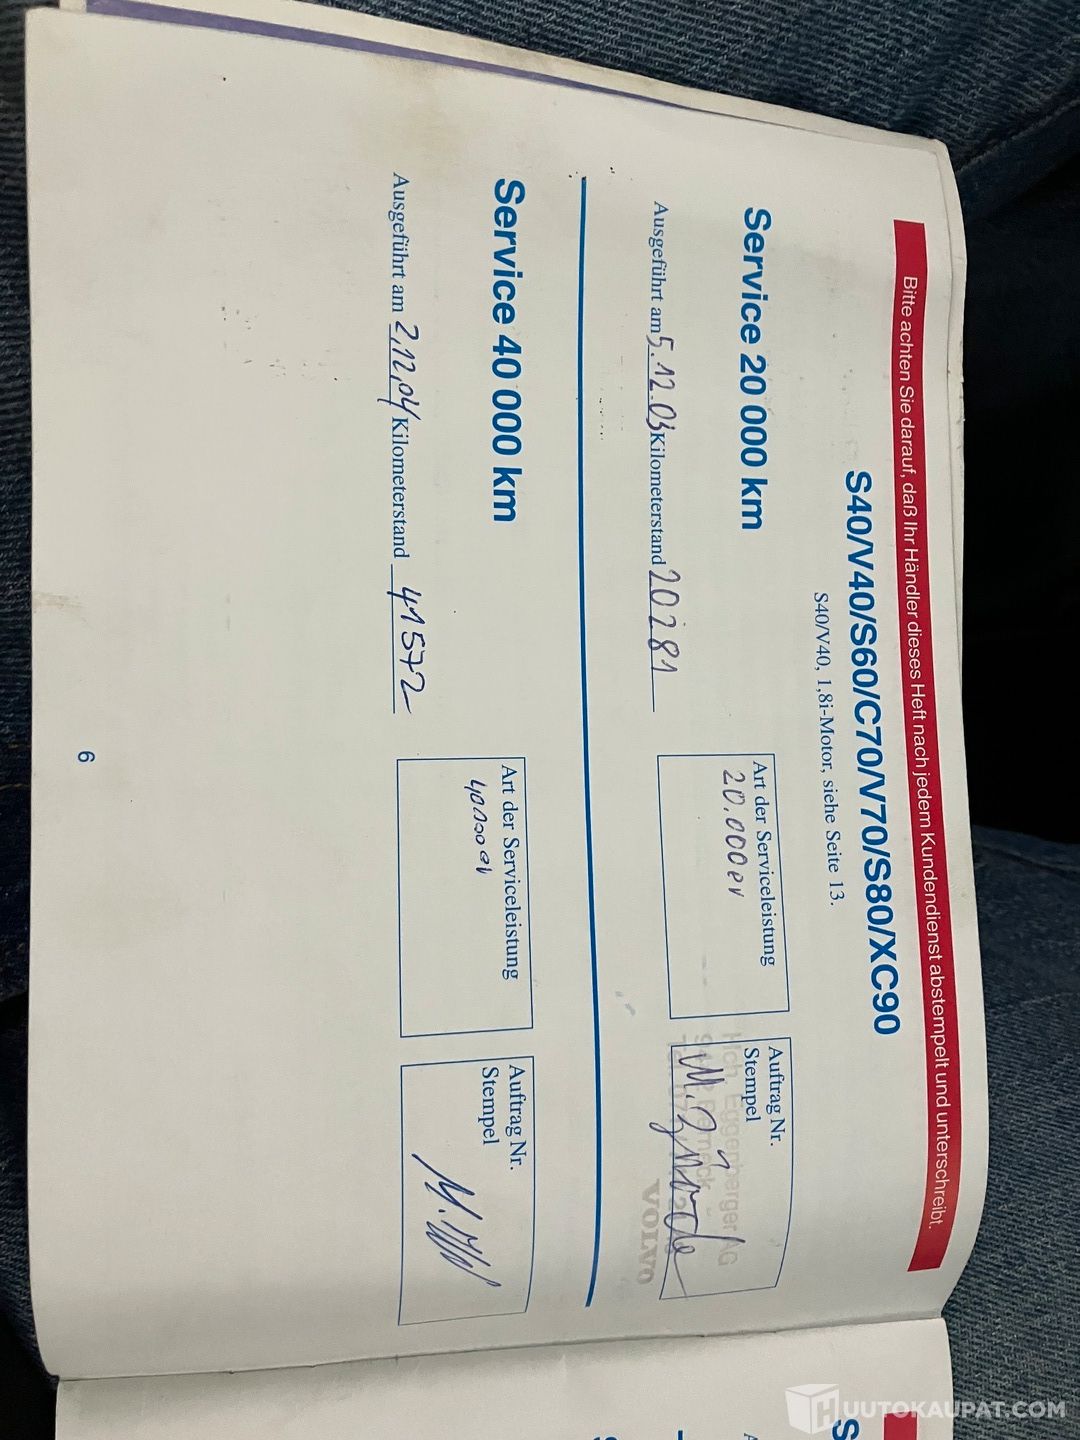 Bitte achten Sie darauf, daß Ihr Händler dieses Heft nach jedem Kundendienst abstempelt und unterschreibt.
S40/V40/S60/C70/V70/S80/XC90
S40/V40, 1,8i-Motor, siehe Seite 13.
Service 20 000 km
Ausgeführt am 5.12.03 Kilometerstand 20281
Art der Serviceleistung
20.000er
Auftrag Nr.
Stempel
Eggenberger AG
VOLVO
Service 40 000 km
Ausgeführt am 2.12.04 Kilometerstand 41572
Art der Serviceleistung
40000er
Auftrag Nr.
Stempel
6
HUUTOKAUPAT.COM